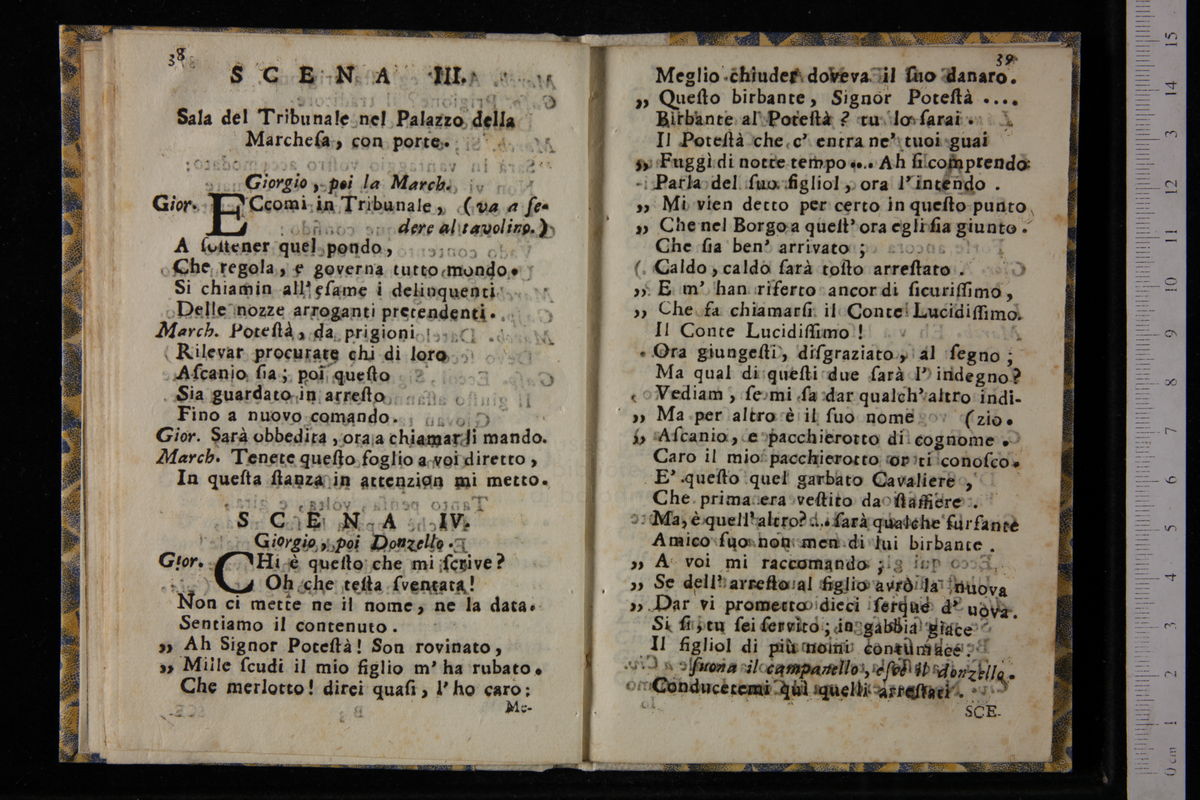 38
SCENA III.
Sala del Tribunale nel Palazzo della
Marcheſa, con porte.
Giorgio, poi la March.
Gior. ECcomi in Tribunale, (va a ſe-
dere al tavolino.)
A ſoſtener quel pondo,
Che regola, e governa tutto mondo.
Si chiamin all'eſame i delinquenti
Delle nozze arroganti pretendenti.
March. Poteſtà, da prigioni
Rilevar procurate chi di loro
Aſcanio ſia; poi queſto
Sia guardato in arreſto
Fino a nuovo comando.
Gior. Sarà obbedita, ora a chiamarli mando.
March. Tenete queſto foglio a voi diretto,
In queſta ſtanza in attenzion mi metto.
SCENA IV.
Giorgio, poi Donzello.
Gior. CHi è queſto che mi ſcrive?
Oh che teſta ſventata!
Non ci mette ne il nome, ne la data.
Sentiamo il contenuto.
„ Ah Signor Poteſtà! Son rovinato,
„ Mille ſcudi il mio figlio m'ha rubato.
Che merlotto! direi quaſi, l'ho caro:
Me-
39
Meglio chiuder doveva il ſuo danaro.
„ Queſto birbante, Signor Poteſtà ....
Birbante al Poteſtà? tu lo ſarai.
Il Poteſtà che c'entra ne' tuoi guai
„ Fuggì di notte tempo .... Ah ſi comprendo
Parla del ſuo figliol, ora l'intendo.
„ Mi vien detto per certo in queſto punto
„ Che nel Borgo a queſt'ora egli ſia giunto.
Che ſia ben' arrivato;
Caldo, caldo ſarà toſto arreſtato.
„ E m' han riferto ancor di ſicuriſſimo,
„ Che ſa chiamarſi il Conte Lucidiſſimo.
Il Conte Lucidiſſimo!
Ora giungeſti, diſgraziato, al ſegno;
Ma qual di queſti due ſarà l' indegno?
Vediam, ſe mi ſa dar qualch' altro indi-
„ Ma per altro è il ſuo nome (zio.
„ Aſcanio, e pacchierotto di cognome.
Caro il mio pacchierotto or ti conoſco.
E' queſto quel garbato Cavaliere,
Che prima era veſtito da ſtaffiere.
Ma, è quell'altro? ... ſarà qualche furfante
Amico ſuo non men di lui birbante.
„ A voi mi raccomando;
„ Se dell' arreſto al figlio avrò la nuova
„ Dar vi prometto dieci ſerque d' uova.
Si ſi, tu ſei ſervito; in gabbia giace
Il figliol di più nomi contumace.
ſuona il campanello, eſce il donzello.
Conducetemi quì quelli arreſtati.
SCE-
0 cm 1 2 3 4 5 6 7 8 9 10 11 12 13 14 15